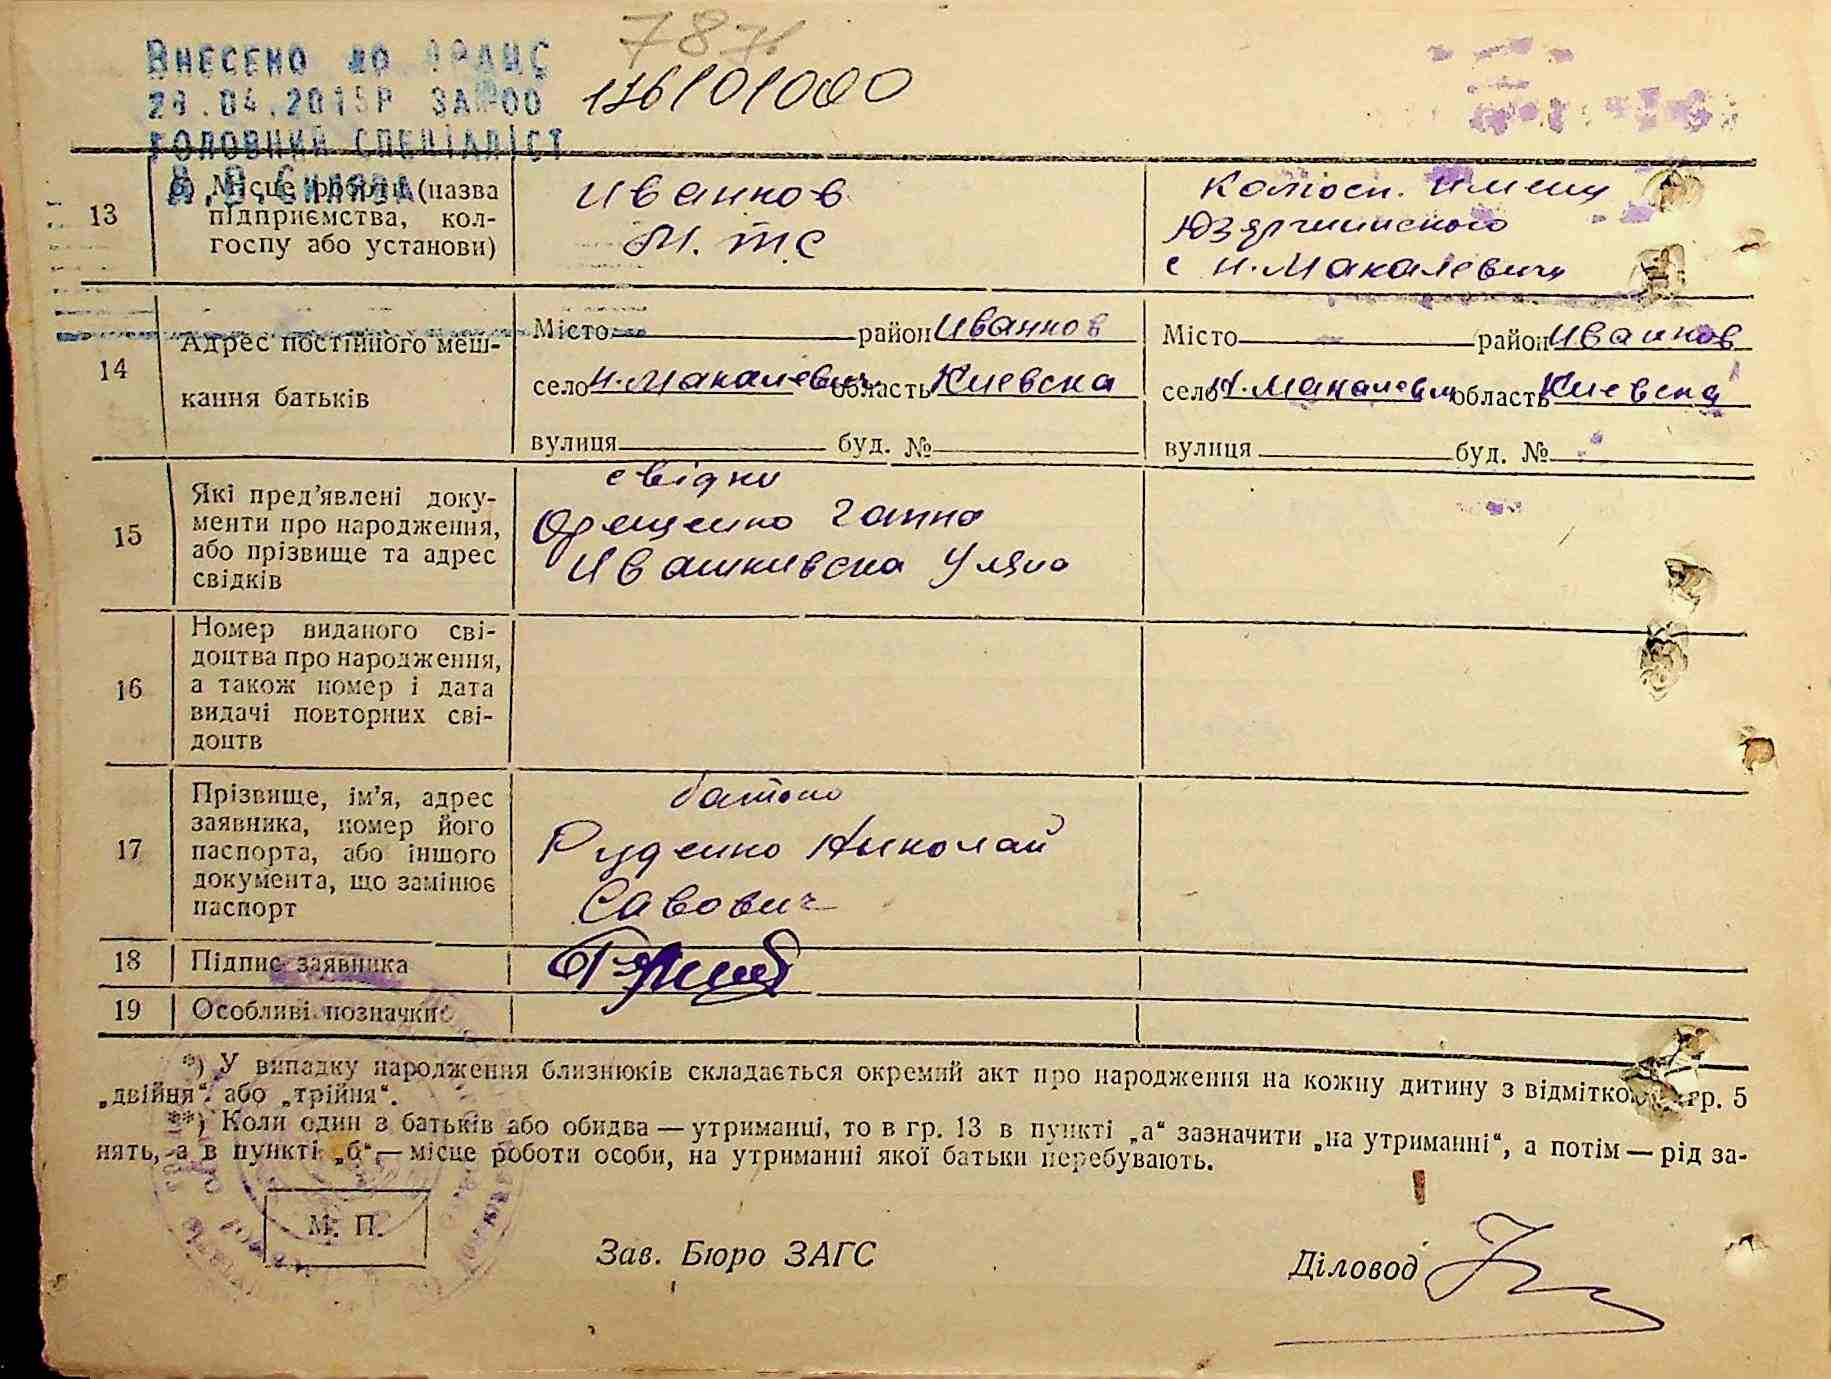 787
ВНЕСЕНО ДО ДРАЦС
28.04.2015Р ЗА №00
176101000
ГОЛОВНИЙ СПЕЦІАЛІСТ
13
б) Місце роботи (назва підприємства, кол-
госпу або установи)
Иванков
М.т.с
Колгосп. имени
Дзяржинского
с Н.Макалевичи
14
Адрес постійного меш-
кання батьків
Місто район Иванков
село Н.Макалевич область Киевска
вулиця буд. №
Місто район Иванков
село Н.Макалевич область Киевска
вулиця буд. №
15
Які пред'явлені доку-
менти про народження,
або прізвище та адрес
свідків
свідки
Орещенко Ганна
Ивашкивска Уляна
16
Номер виданого сві-
доцтва про народження,
а також номер і дата
видачі повторних сві-
доцтв
17
Прізвище, ім'я, адрес
заявника, номер його
паспорта, або іншого
документа, що замінює
паспорт
батько
Руденко Николай
Савович
18
Підпис заявника
19
Особливі позначки
*) У випадку народження близнюків складається окремий акт про народження на кожну дитину з відміткою гр. 5
„двійня“ або „трійня“.
**) Коли один з батьків або обидва — утриманці, то в гр. 13 в пункті „а“ зазначити „на утриманні“, а потім — рід за-
нять, а в пункті „б“ — місце роботи особи, на утриманні якої батьки перебувають.
М. П.
Зав. Бюро ЗАГС
Діловод